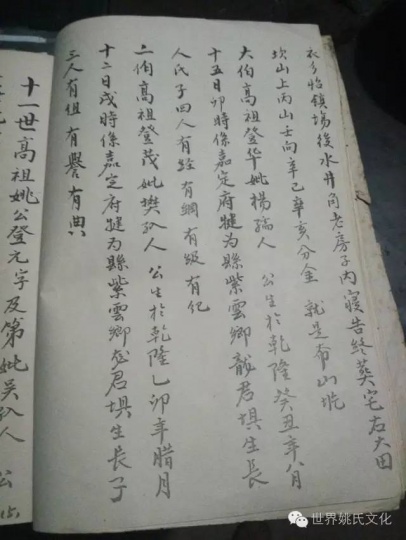 衣乡怡镇場後水井角老房子内寝告終葬宅右大田
坎山上丙山壬向辛己辛亥分金 就是布山地
大伯高祖登华妣楊孺人 公生於乾隆癸丑年八月
十五日卯時係嘉定府犍为縣紫雲鄉龍君垻生長
人氏子四人有经有綱有级有纪
二伯高祖登茂妣樊人 公生於乾隆乙卯年腊月
十二日戌時係嘉定府犍为縣紫雲鄉龙君垻生長子
三人有伹有譽有典
十一世高祖姚公登元字及第妣吴人 公
世界姚氏文化